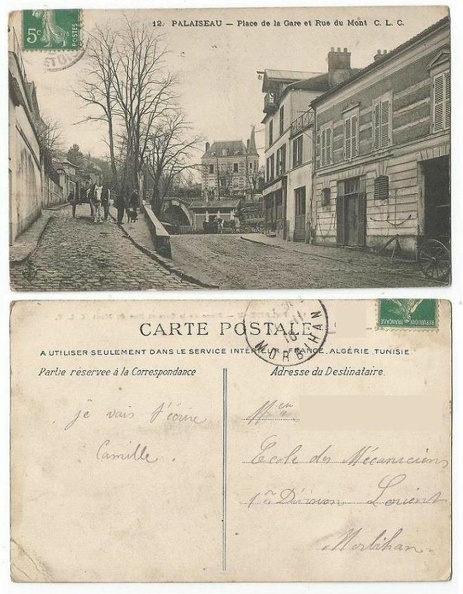 12. PALAISEAU — Place de la Gare et Rue du Mont C. L. C.
5c
POSTES
CARTE POSTALE
A UTILISER SEULEMENT DANS LE SERVICE INTERIEUR FRANCE, ALGÉRIE, TUNISIE
Partie réservée à la Correspondance
Adresse du Destinataire.
MORBIHAN
je vais t'écrire
Camille.
École des Mécaniciens
Lorient
Morbihan.